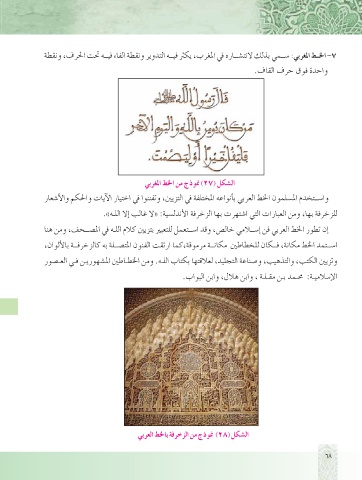 ٧- الخط المغربي: سمي بذلك لانتشاره في المغرب، يكثر فيه التدوير ونقطة الفاء فيه تحت الحرف، ونقطة
واحدة فوق حرف القاف.
قال رسول الله ﷺ
من كان يؤمن بالله واليوم الآخر
فليقل خيراً أو ليصمت.
الشكل (٢٧) نموذج من الخط المغربي
واستخدم المسلمون الخط العربي بأنواعه المختلفة في التزيين، وتفننوا في اختيار الآيات والحكم والأشعار
للزخرفة بها، ومن العبارات التي اشتهرت بها الزخرفة الأندلسية: «لا غالب إلا الله».
إن تطور الخط العربي فن إسلامي خالص، وقد استعمل للتعبير بتزيين كلام الله في المصحف، ومن هنا
استمد الخط مكانة، فكان للخطاطين مكانة مرموقة، كما ارتقت الفنون المتصلة به كالزخرفة بالألوان،
وتزيين الكتب، والتذهيب، وصناعة التجليد، لعلاقتها بكتاب الله. ومن الخطاطين المشهورين في العصور
الإسلامية: محمد بن مقلة، وابن هلال، وابن البواب.
الشكل (٢٨) نموذج من الزخرفة بالخط العربي
٦٨